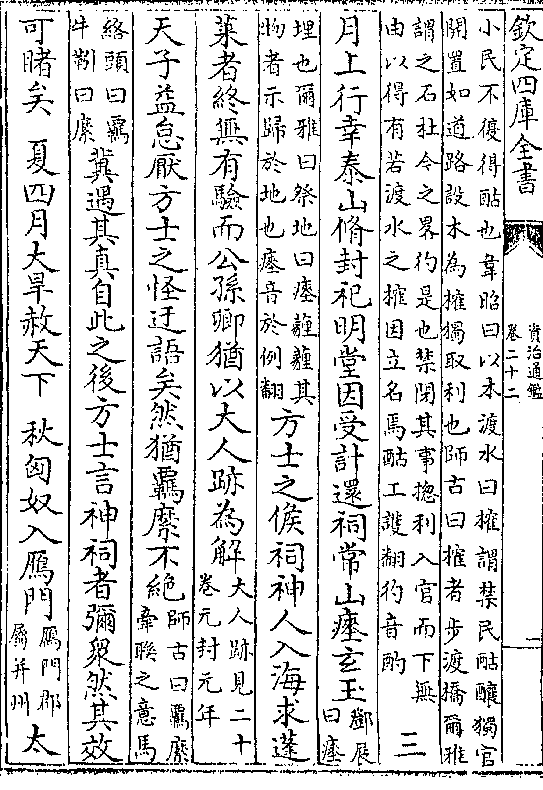 欽定四庫全書
資治通鑑
卷二十二
小民不復得酤也韋昭曰以木渡水曰榷謂禁民酤釀獨官
開置如道路設木為榷獨取利也師古曰榷者步渡橋爾雅
謂之石杠今之畧彴是也禁閉其事揔利入官而下無
由以得有若渡水之榷因立名焉酤工護翻彴音酌
三
月上行幸泰山脩封祀明堂因受計還祠常山瘞玄玉
鄧展
曰瘞
埋也爾雅曰祭地曰瘞薶薶其
物者示歸於地也瘞音於例翻
方士之候祠神人入海求蓬
萊者終無有驗而公孫卿猶以大人跡為解
大人跡見二十
卷元封元年
天子益怠厭方士之怪迂語矣然猶羈縻不絶
師古曰羈縻
牽聯之意馬
絡頭曰羈
牛靷曰縻
冀遇其真自此之後方士言神祠者彌衆然其效
可睹矣 夏四月大旱赦天下 秋匈奴入鴈門
鴈門郡
屬并州
太